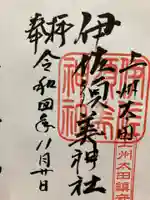 上州太田
伊佐須美神社
奉拝
令和四年11月廿日
上州太田鎮守